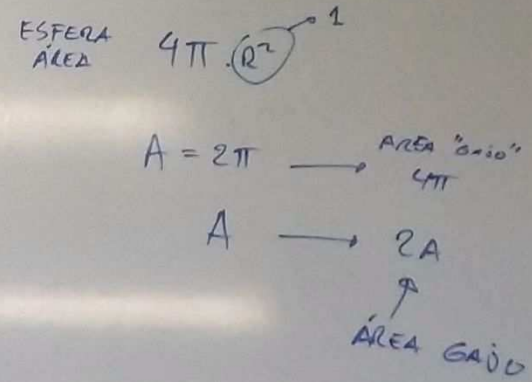 ESFERA
ÁREA 4π.R² 1
A = 2π → AREA "GAJO"
4π
A → 2A
ÁREA GAJO